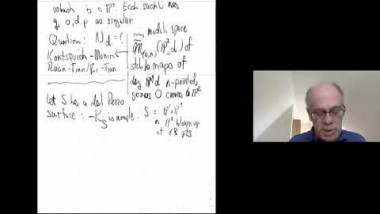 which is a P¹. Each such has
g. o.d.p as singular
Question: N_d = ?
moduli space
Kontsevich-Manin
M̄₀,ₙ(P²,d) of
stable maps of
deg d n-pointed
genus 0 curves to P²
Let S be a del Pezzo
surface: -K_S is ample. S = P¹×P¹
or P² blown up
at ≤8 pts